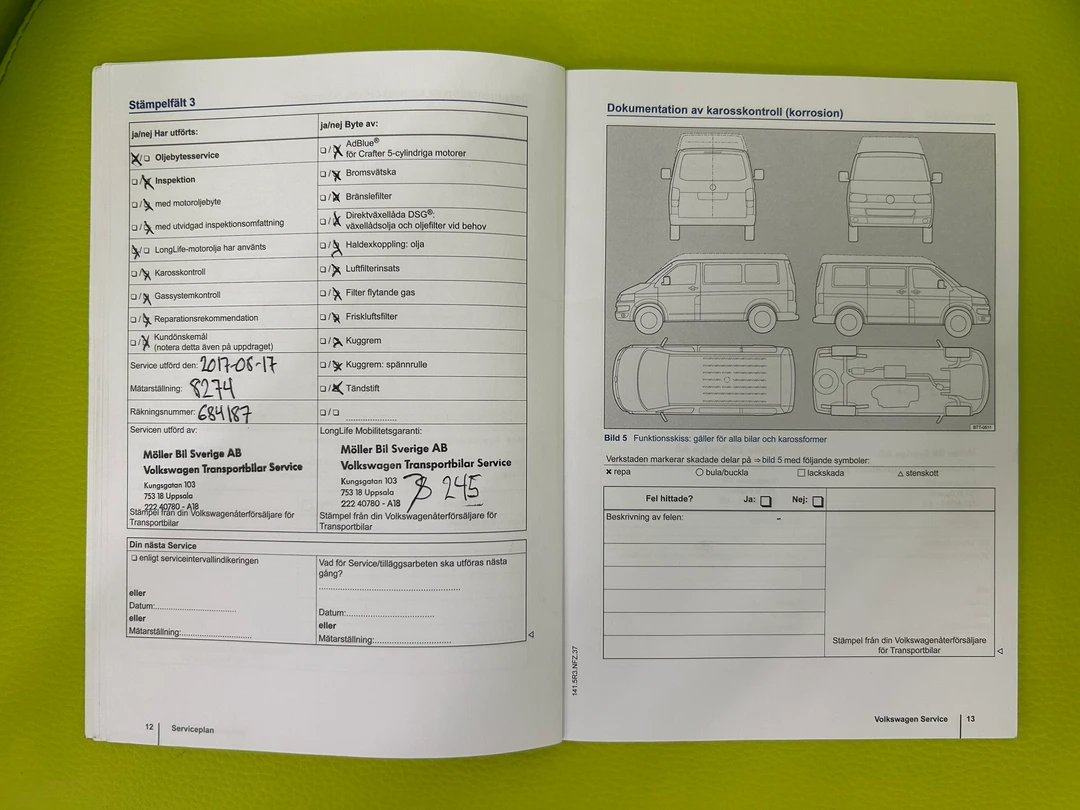 Stämpelfält 3
ja/nej Har utförts:
☒/☐ Oljebytesservice
☐/☒ Inspektion
☐/☒ med motoroljebyte
☐/☒ med utvidgad inspektionsomfattning
☒/☐ LongLife-motorolja har använts
☐/☒ Karosskontroll
☐/☒ Gassystemkontroll
☐/☒ Reparationsrekommendation
☐/☒ Kundönskemål
(notera detta även på uppdraget)
Service utförd den: 2017-08-17
Mätarställning: 8274
Räkningsnummer: 684187
Servicen utförd av:
Möller Bil Sverige AB
Volkswagen Transportbilar Service
Kungsgatan 103
753 18 Uppsala
222 40780 - A18
Stämpel från din Volkswagenåterförsäljare för
Transportbilar
ja/nej Byte av:
☐/☒ AdBlue®
för Crafter 5-cylindriga motorer
☐/☒ Bromsvätska
☐/☒ Bränslefilter
☐/☒ Direktväxellåda DSG®:
växellådsolja och oljefilter vid behov
☐/☒ Haldexkoppling: olja
☐/☒ Luftfilterinsats
☐/☒ Filter flytande gas
☐/☒ Friskluftsfilter
☐/☒ Kuggrem
☐/☒ Kuggrem: spännrulle
☐/☒ Tändstift
☐/☐
LongLife Mobilitetsgaranti:
Möller Bil Sverige AB
Volkswagen Transportbilar Service
Kungsgatan 103
753 18 Uppsala
222 40780 - A18
245
Stämpel från din Volkswagenåterförsäljare för
Transportbilar
Din nästa Service
☐ enligt serviceintervallindikeringen
eller
Datum:
eller
Mätarställning:
Vad för Service/tilläggsarbeten ska utföras nästa
gång?
Datum:
eller
Mätarställning:
12 Serviceplan
Dokumentation av karosskontroll (korrosion)
BTT-0611
Bild 5 Funktionsskiss: gäller för alla bilar och karossformer
Verkstaden markerar skadade delar på ⇒ bild 5 med följande symboler:
× repa ○ bula/buckla □ lackskada △ stenskott
Fel hittade? Ja: ☐ Nej: ☐
Beskrivning av felen:
Stämpel från din Volkswagenåterförsäljare
för Transportbilar
141.5R3.NFZ.37
Volkswagen Service 13